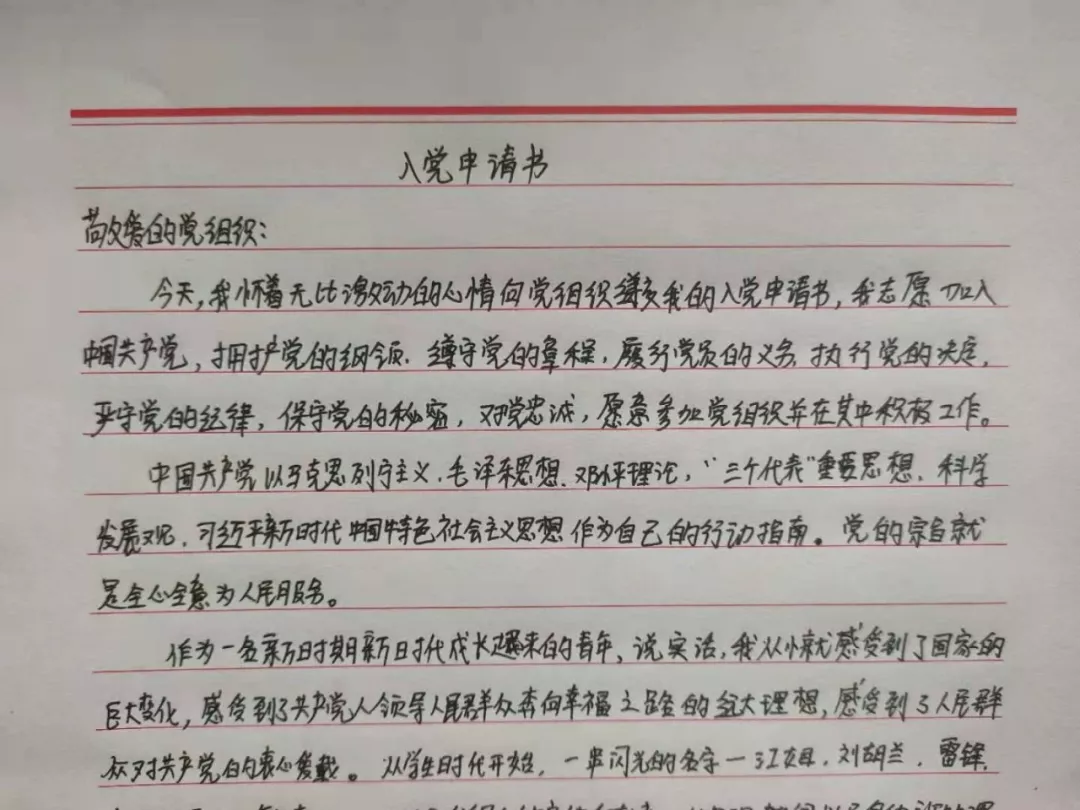 入党申请书
敬爱的党组织：
今天，我怀着无比激动的心情向党组织递交我的入党申请书，我志愿加入
中国共产党，拥护党的纲领、遵守党的章程，履行党员的义务，执行党的决定，
严守党的纪律，保守党的秘密，对党忠诚，愿意参加党组织并在其中积极工作。
中国共产党以马克思列宁主义、毛泽东思想、邓小平理论，“三个代表”重要思想、科学
发展观、习近平新时代中国特色社会主义思想作为自己的行动指南。党的宗旨就
是全心全意为人民服务。
作为一名新时期新时代成长起来的青年，说实话，我从小就感受到了国家的
巨大变化，感受到了共产党人领导人民群众奔向幸福之路的远大理想，感受到了人民群
众对共产党的衷心爱戴。从学生时代开始，一串闪光的名字一江姐、刘胡兰、雷锋、